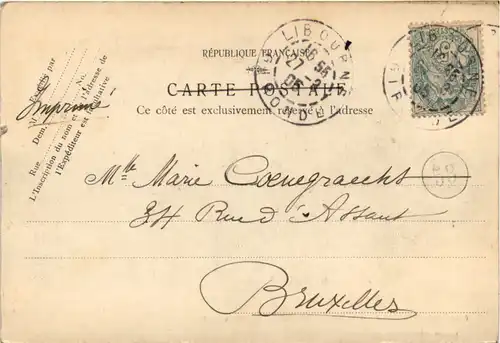 RÉPUBLIQUE FRANÇAISE
CARTE POSTALE
Ce côté est exclusivement réservé à l'adresse
par
Dem. No.
Rue
L'Inscription du nom et de l'adresse de
l'Expéditeur est facultative
Imprimé
LIBOURNE
GIRONDE
LIBOURNE
Mlle Marie Coenegraechts
34 Rue d'Assaut
Bruxelles